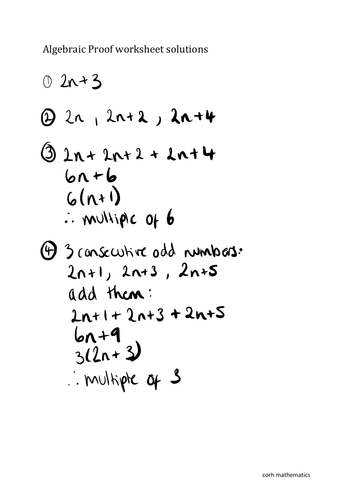 Algebraic Proof worksheet solutions
① 2n+3
② 2n , 2n+2 , 2n+4
③ 2n + 2n+2 + 2n+4
6n+6
6(n+1)
∴ multiple of 6
④ 3 consecutive odd numbers:
2n+1, 2n+3, 2n+5
add them:
2n+1 + 2n+3 + 2n+5
6n+9
3(2n+3)
∴ multiple of 3
corh mathematics